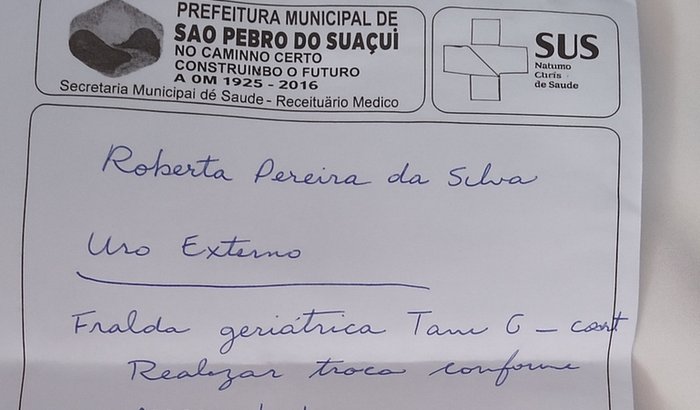 PREFEITURA MUNICIPAL DE
SAO PEBRO DO SUAÇUÌ
NO CAMINNO CERTO
CONSTRUINBO O FUTURO
A 0M 1925 - 2016
Secretaria Municipai dé Saude - Receituário Medico
SUS
Natumo
Chris
de Saude
Roberta Pereira da Silva
Uso Externo
Fralda geriátrica Tam G - cont
Realizar troca conforme